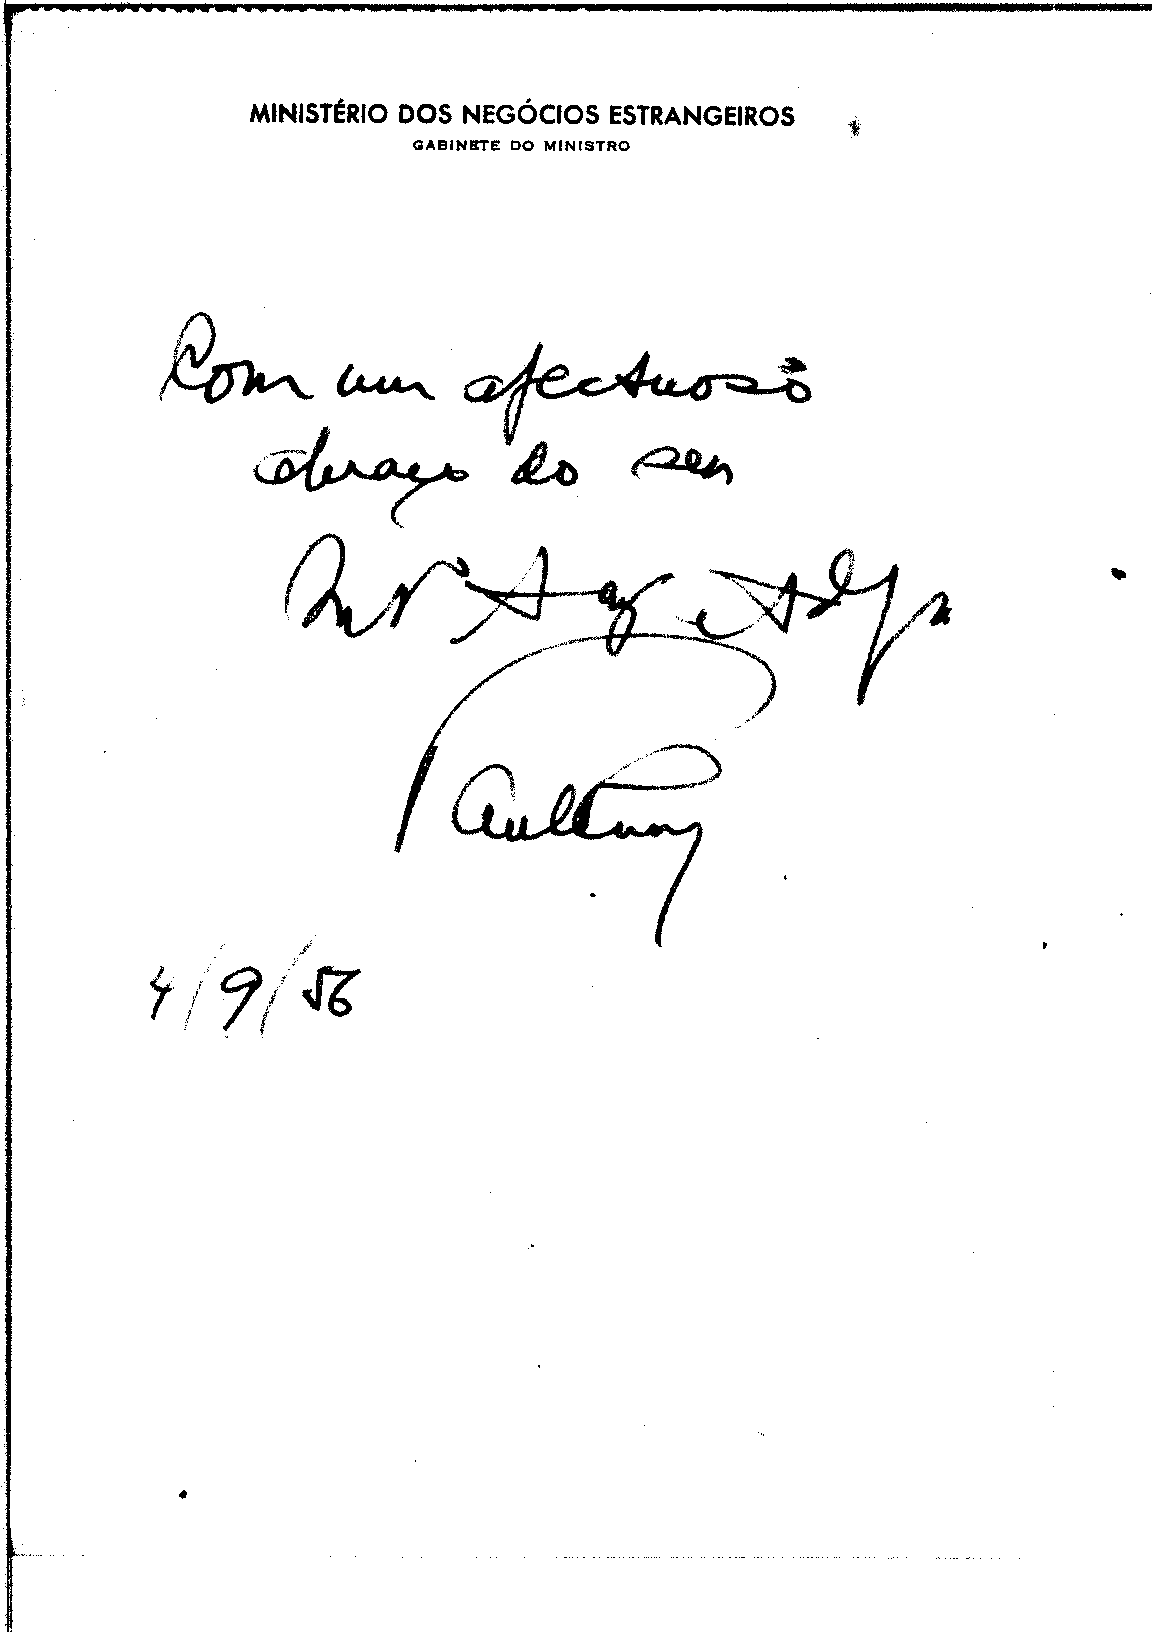 MINISTÉRIO DOS NEGÓCIOS ESTRANGEIROS
GABINETE DO MINISTRO
Com um afectuoso
abraço do seu
Mtº Amº e
Paulo Cunha
4/9/56